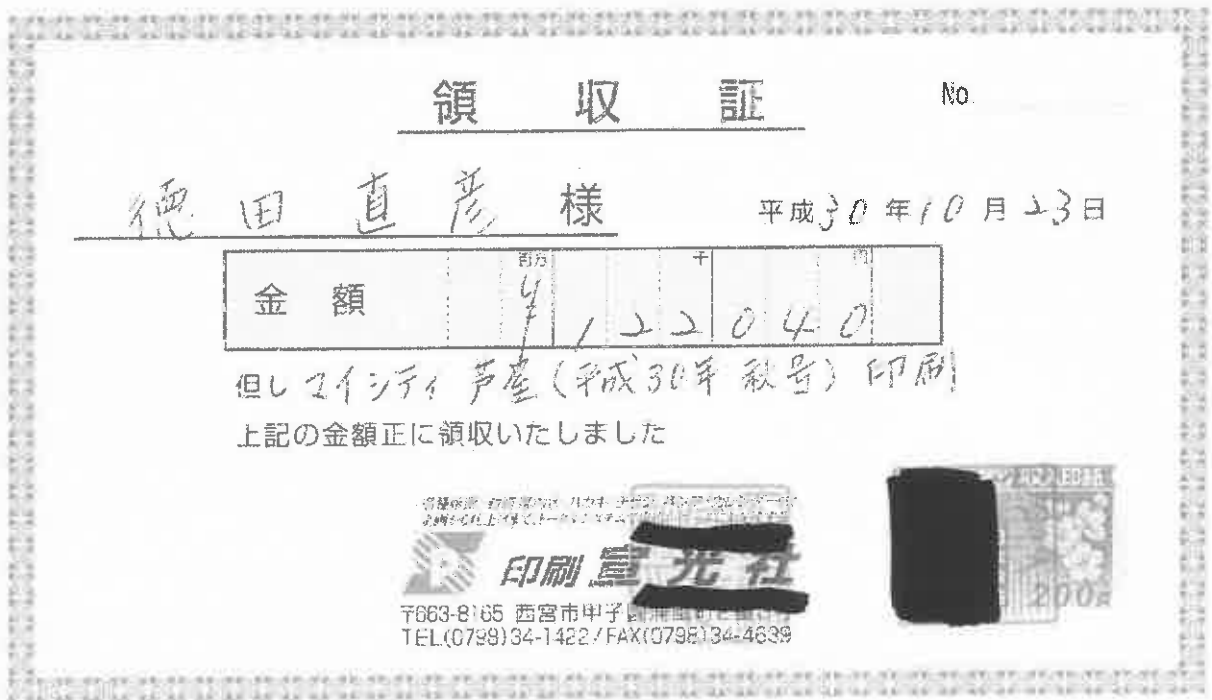 領収証 No.
徳田直彦 様 平成30年10月23日
百万 千 円
金額 ¥122040
但し マイシティ芦屋(平成30年秋号)印刷
上記の金額正に領収いたしました
印刷 宣光社
200円
〒663-8165 西宮市甲子園
TEL(0798)34-1422/FAX(0798)34-4639